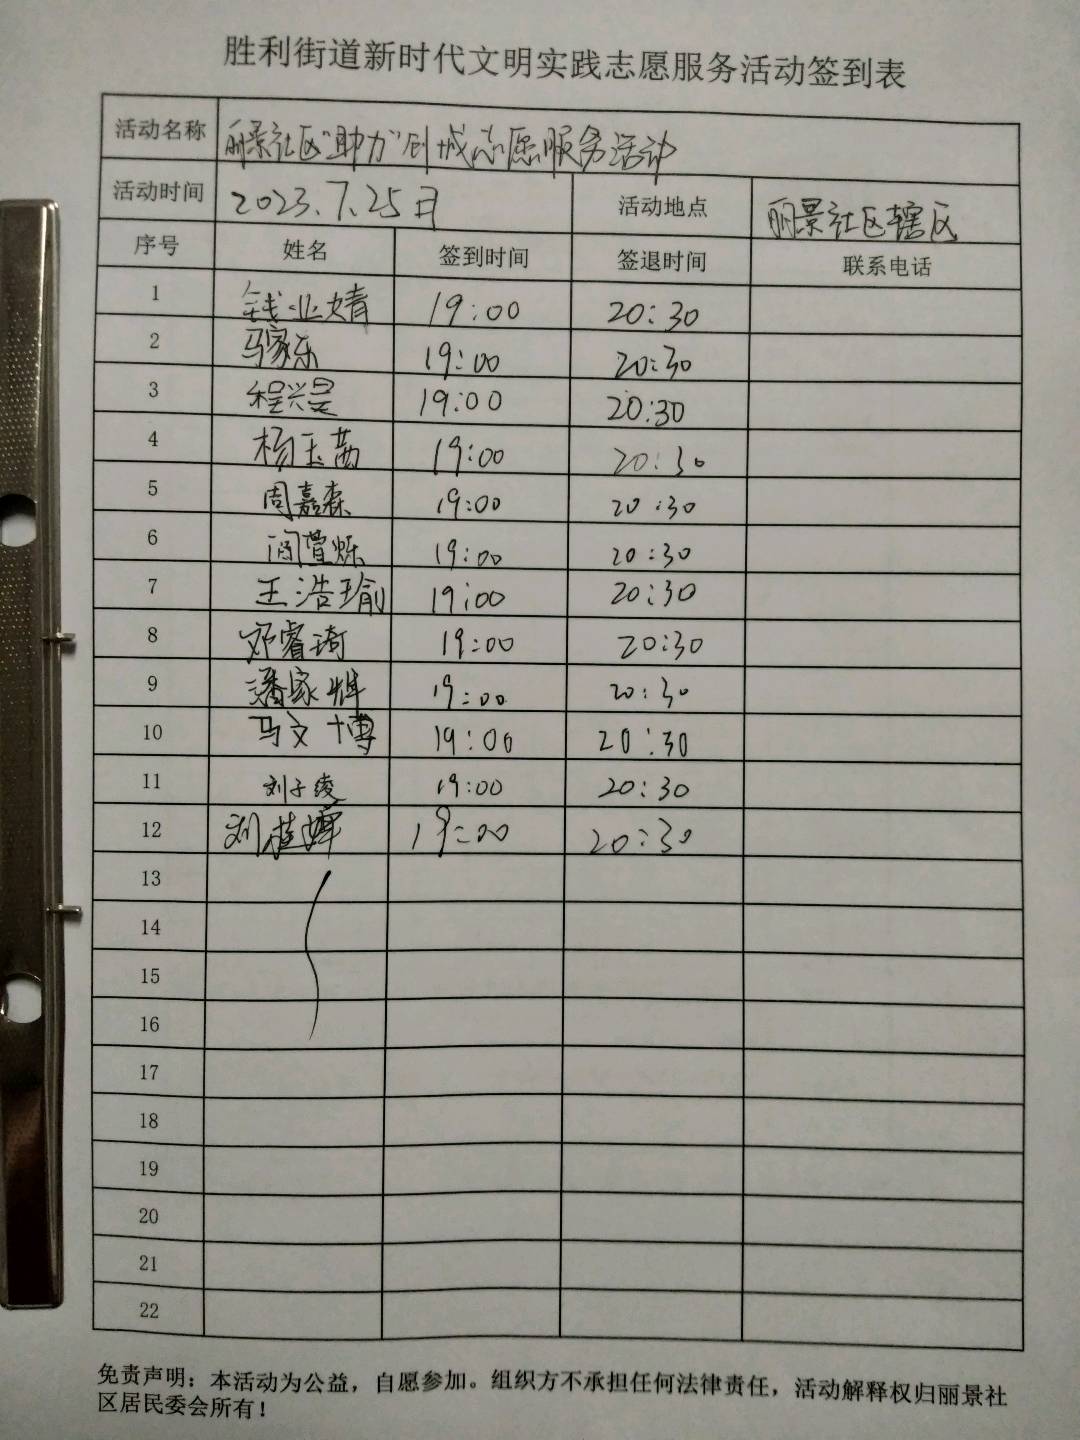 胜利街道新时代文明实践志愿服务活动签到表
活动名称 丽景社区"助力"创城志愿服务活动
活动时间 2023.7.25日 活动地点 丽景社区辖区
序号 姓名 签到时间 签退时间 联系电话
1 钱业婧 19:00 20:30
2 马家乐 19:00 20:30
3 程兴昊 19:00 20:30
4 杨玉茜 19:00 20:30
5 周嘉森 19:00 20:30
6 19:00 20:30
7 王浩瑜 19:00 20:30
8 邓睿琦 19:00 20:30
9 潘家辉 19:00 20:30
10 马文博 19:00 20:30
11 刘子绫 19:00 20:30
12 刘桂婵 19:00 20:30
13
14
15
16
17
18
19
20
21
22
免责声明：本活动为公益，自愿参加。组织方不承担任何法律责任，活动解释权归丽景社
区居民委会所有！